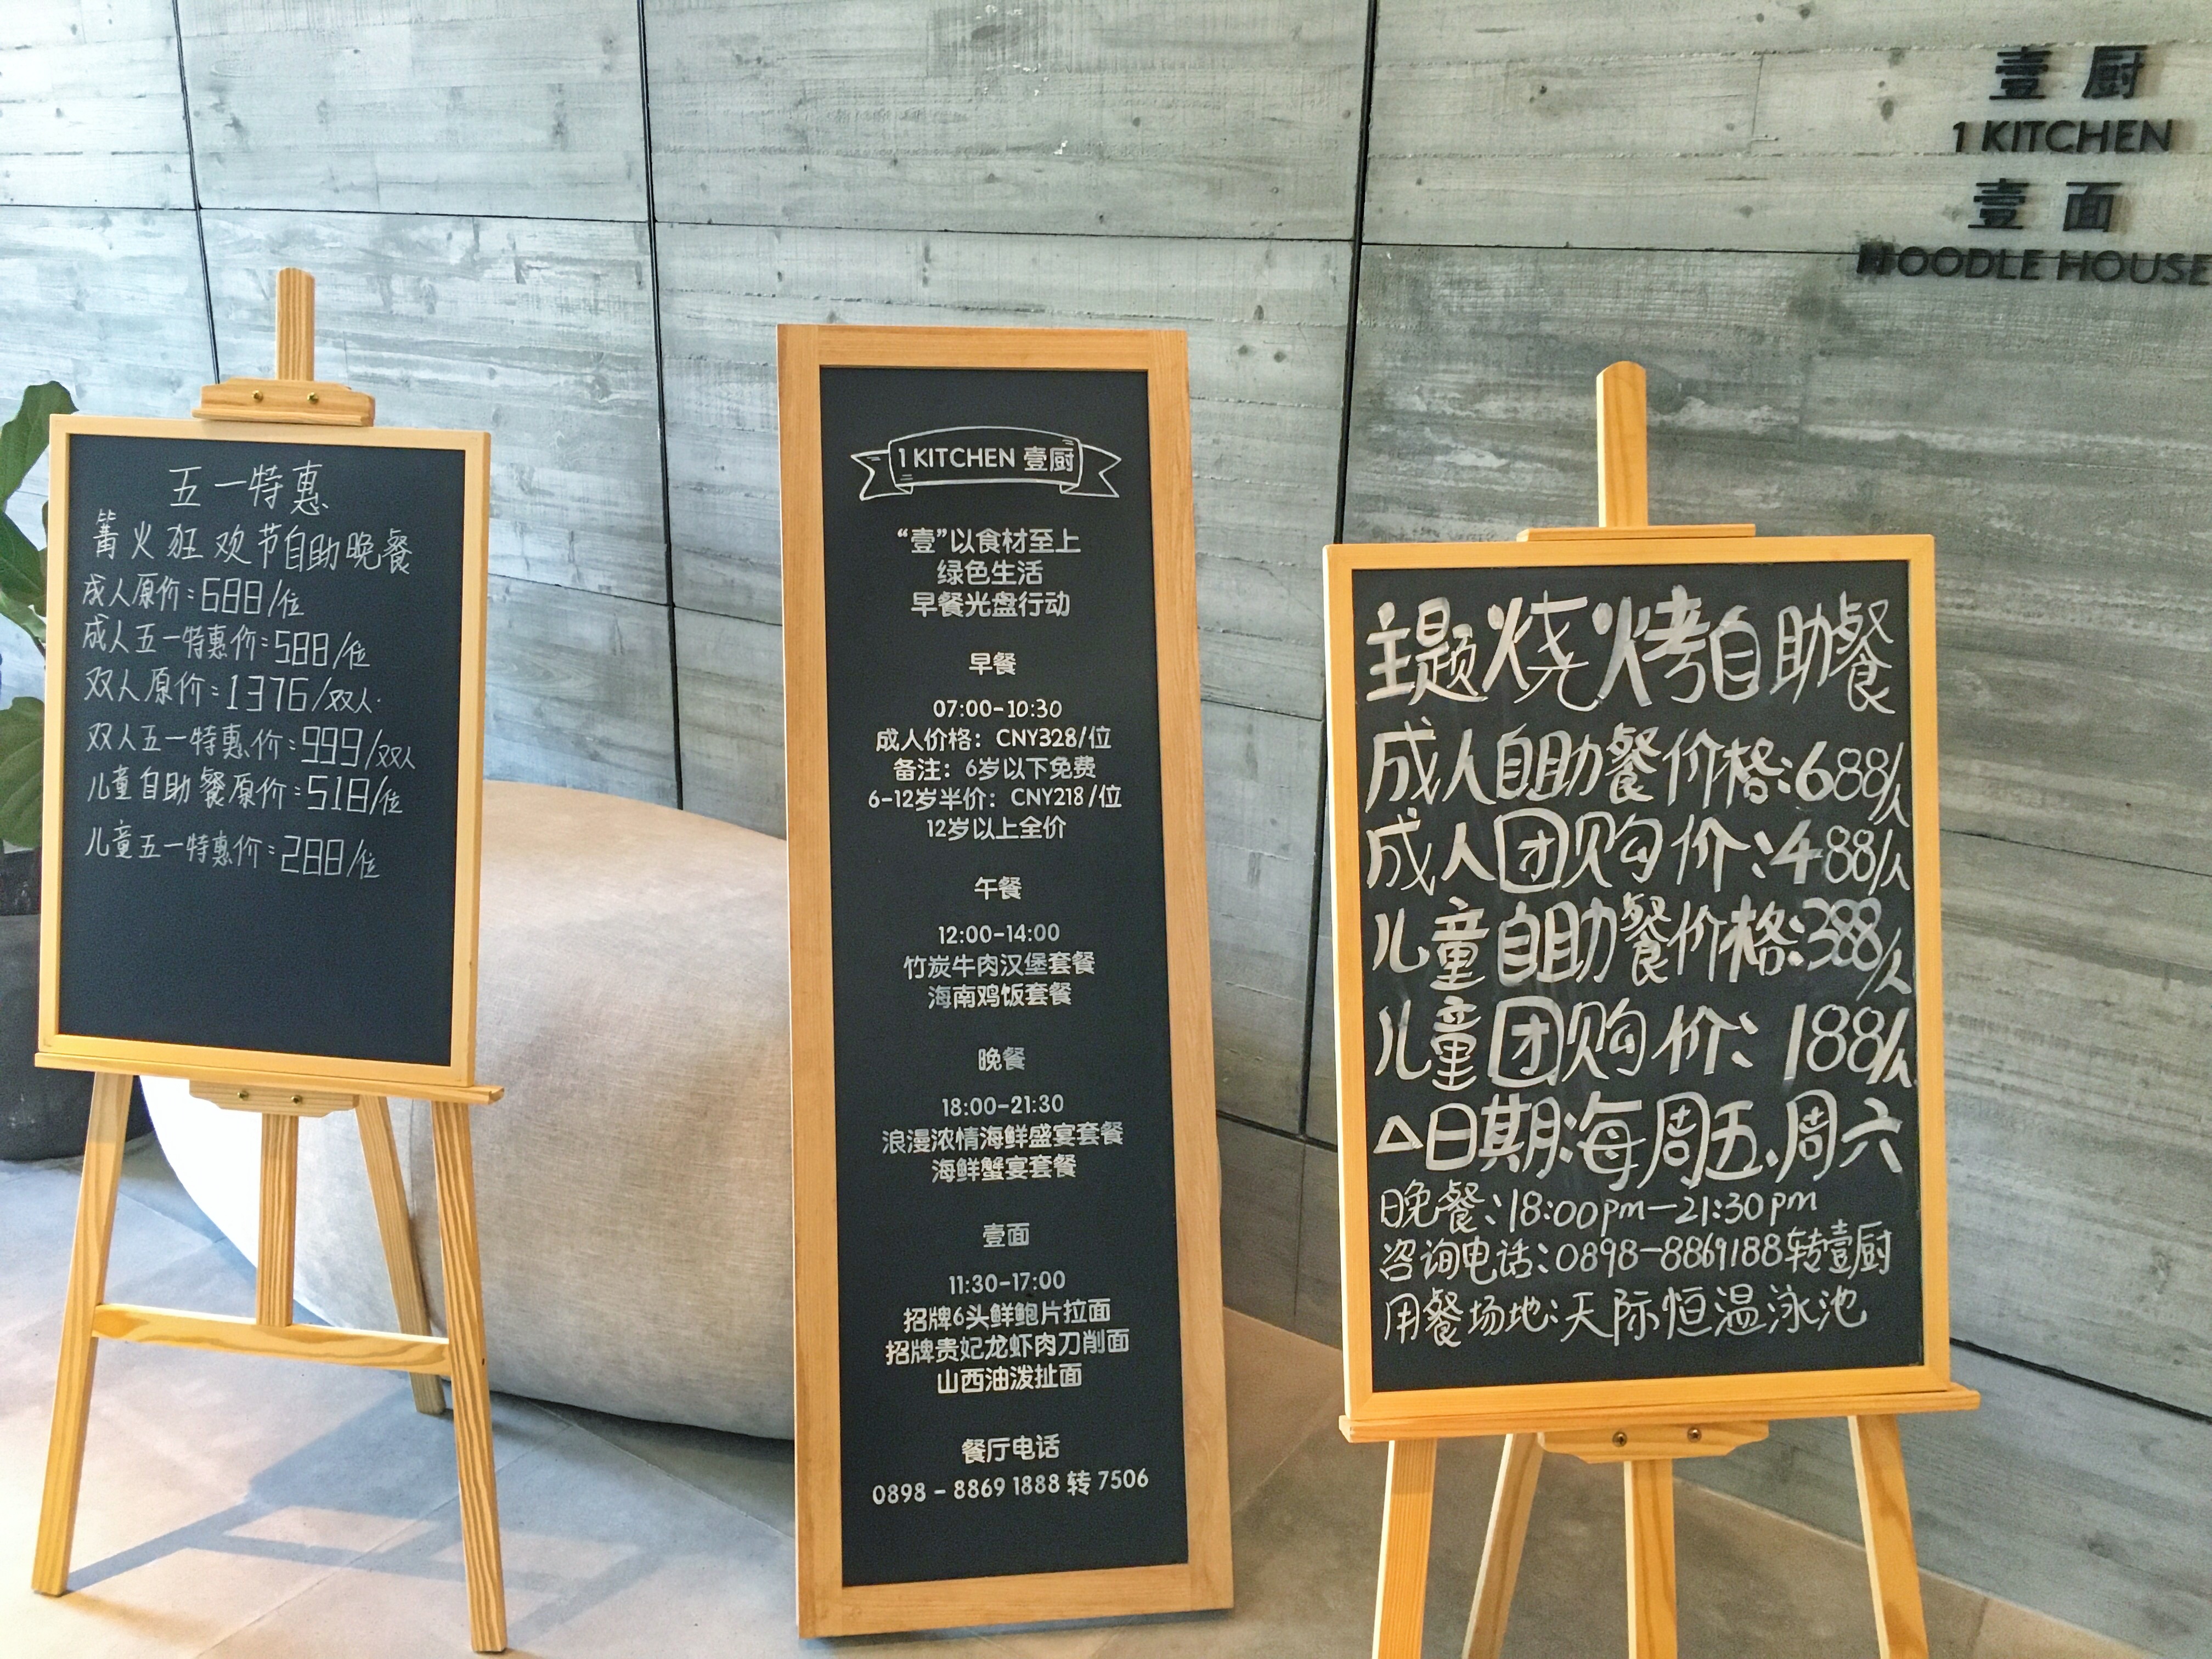 五一特惠
篝火狂欢节自助晚餐
成人原价:688/位
成人五一特惠价:588/位
双人原价:1376/双人.
双人五一特惠价:999/双人
儿童自助餐原价:518/位
儿童五一特惠价:288/位
1 KITCHEN 壹厨
“壹”以食材至上
绿色生活
早餐光盘行动
早餐
07:00-10:30
成人价格: CNY328/位
备注: 6岁以下免费
6-12岁半价: CNY218/位
12岁以上全价
午餐
12:00-14:00
竹炭牛肉汉堡套餐
海南鸡饭套餐
晚餐
18:00-21:30
浪漫浓情海鲜盛宴套餐
海鲜蟹宴套餐
壹面
11:30-17:00
招牌6头鲜鲍片拉面
招牌贵妃龙虾肉刀削面
山西油泼扯面
餐厅电话
0898 - 8869 1888 转 7506
壹厨
1 KITCHEN
壹面
NOODLE HOUSE
主题烧烤自助餐
成人自助餐价格:688/人
成人团购价:488/人
儿童自助餐价格:388/人
儿童团购价:188/人
△日期:每周五、周六
晚餐:18:00pm—21:30pm
咨询电话:0898-8869188转壹厨
用餐场地:天际恒温泳池